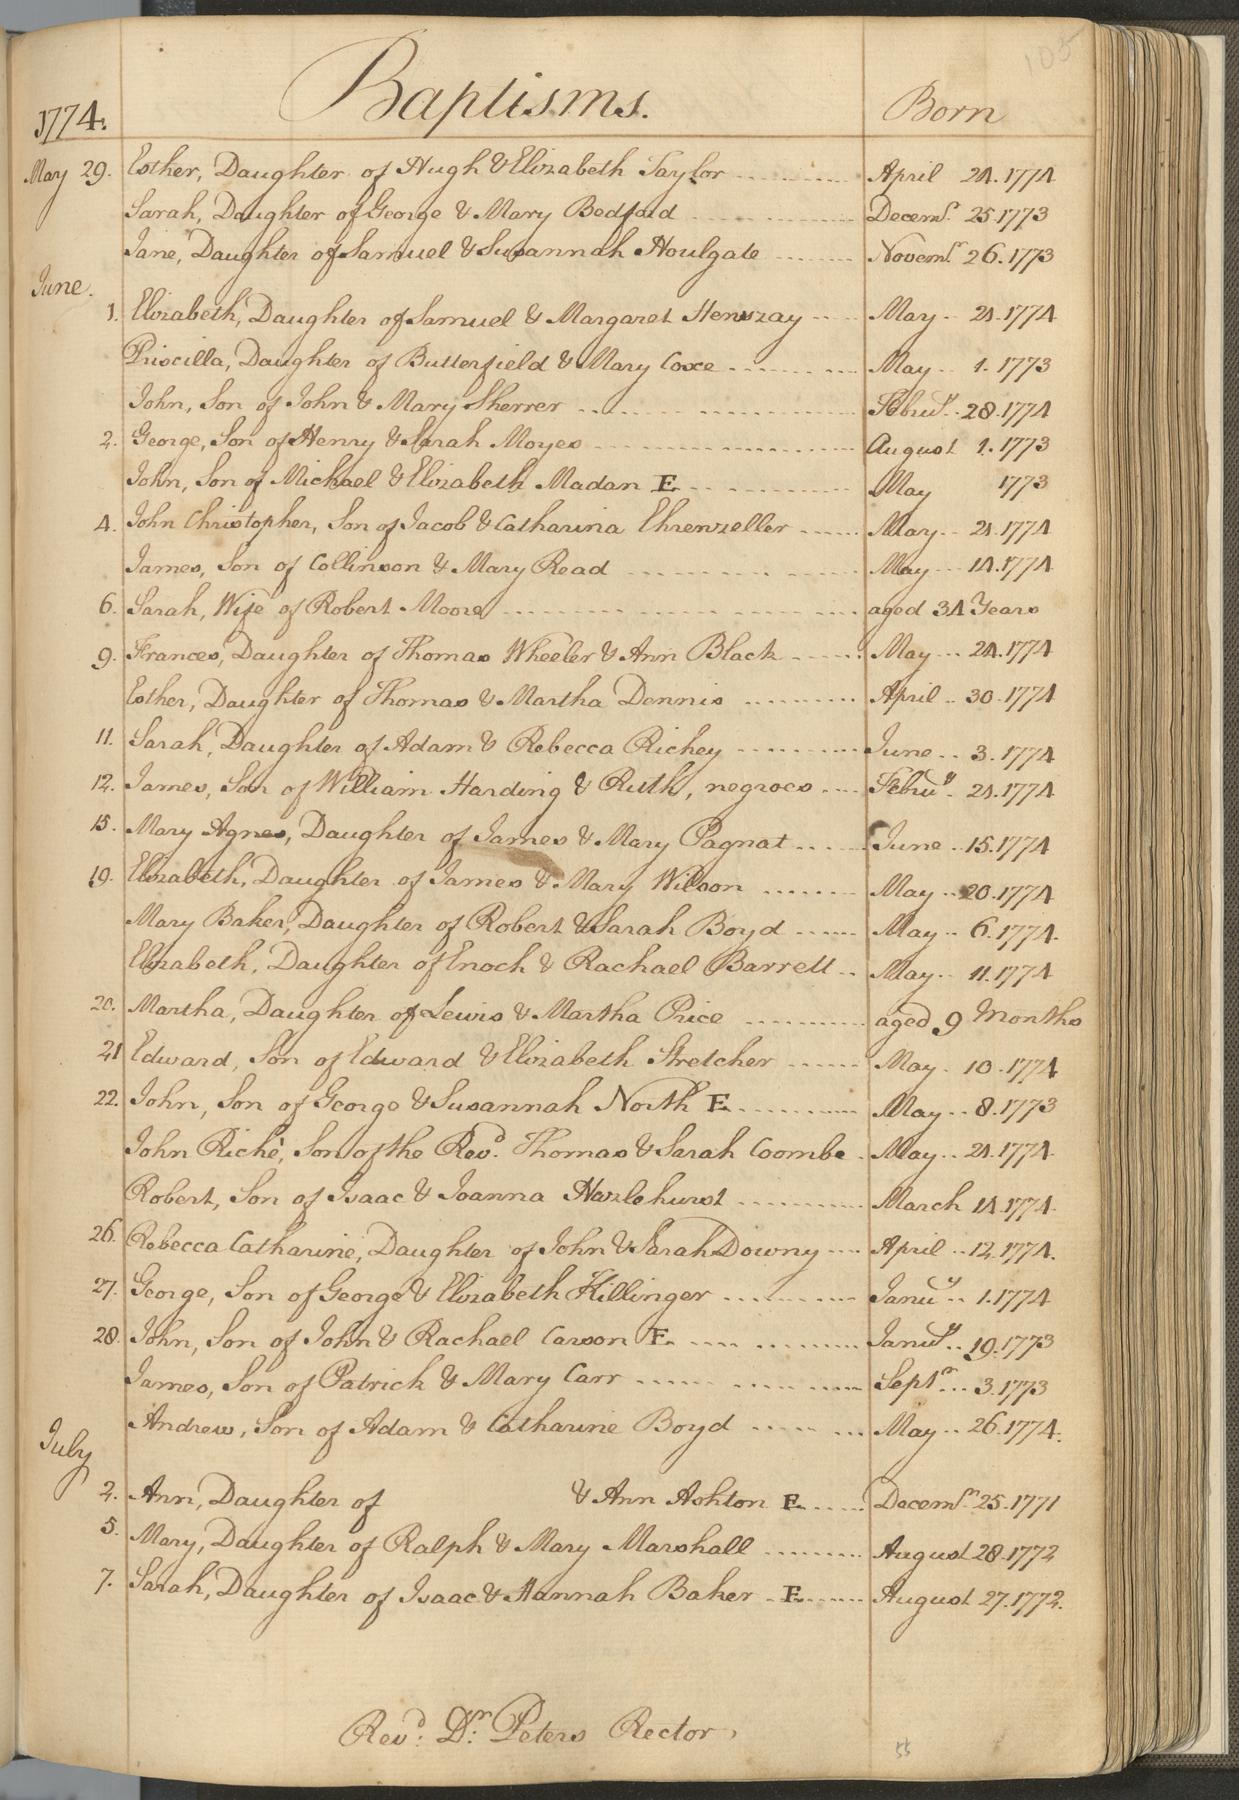 105
1774. Baptisms. Born
May 29. Esther, Daughter of Hugh & Elizabeth Taylor ........... April 24. 1774
Sarah, Daughter of George & Mary Bedford .............. Decemr. 25. 1773
Jane, Daughter of Samuel & Susannah Houlgate ....... Novemr. 26. 1773
June.
1. Elizabeth, Daughter of Samuel & Margaret Henszay .... May .. 21. 1774
Priscilla, Daughter of Butterfield & Mary Coxe ............ May .. 1. 1773
John, Son of John & Mary Sherrer .................... Febru.y .. 28. 1774
2. George, Son of Henry & Sarah Moyes .................... August 1. 1773
John, Son of Michael & Elizabeth Madan E ............ May 1773
4. John Christopher, Son of Jacob & Catharina Ehrenzeller ...... May .. 21. 1774
James, Son of Collinson & Mary Read .............. May ... 14. 1774
6. Sarah, Wife of Robert Moore .................... aged 34 Years
9. Frances, Daughter of Thomas Wheeler & Ann Black ...... May ... 24. 1774
Esther, Daughter of Thomas & Martha Dennis .......... April .. 30. 1774
11. Sarah, Daughter of Adam & Rebecca Richey .......... June .. 3. 1774
12. James, Son of William Harding & Ruth, negroes .... Febru.y . 21. 1774
15. Mary Agnes, Daughter of James & Mary Pagnat ...... June . 15. 1774
19. Elizabeth, Daughter of James & Mary Wilson ....... May .. 20. 1774
Mary Baker, Daughter of Robert & Sarah Boyd ...... May .. 6. 1774.
Elizabeth, Daughter of Enoch & Rachael Barrett .. May .. 11. 1774
20. Martha, Daughter of Lewis & Martha Price .......... aged 9 Months
21 Edward, Son of Edward & Elizabeth Stretcher ...... May . 10. 1774
22. John, Son of George & Susannah North E .......... May .. 8. 1773
John Riché, Son of the Revd. Thomas & Sarah Coombe . May .. 21. 1774.
Robert, Son of Isaac & Joanna Hazlehurst .......... March 14. 1774.
26. Rebecca Catharine, Daughter of John & Sarah Downy .... April .. 12. 1774.
27. George, Son of George & Elizabeth Killinger .......... Janu.y .. 1. 1774
28. John, Son of John & Rachael Carson E ............ Janu.y .. 19. 1773
James, Son of Patrick & Mary Carr .............. Septr ... 3. 1773
Andrew, Son of Adam & Catharine Boyd ........ May .. 26. 1774.
July
2. Ann, Daughter of & Ann Ashton E ...... Decemr. 25. 1771
5. Mary, Daughter of Ralph & Mary Marshall ......... August 28. 1772
7. Sarah, Daughter of Isaac & Hannah Baker . E ...... August 27. 1772.
Revd. Dr. Peters Rector.
55